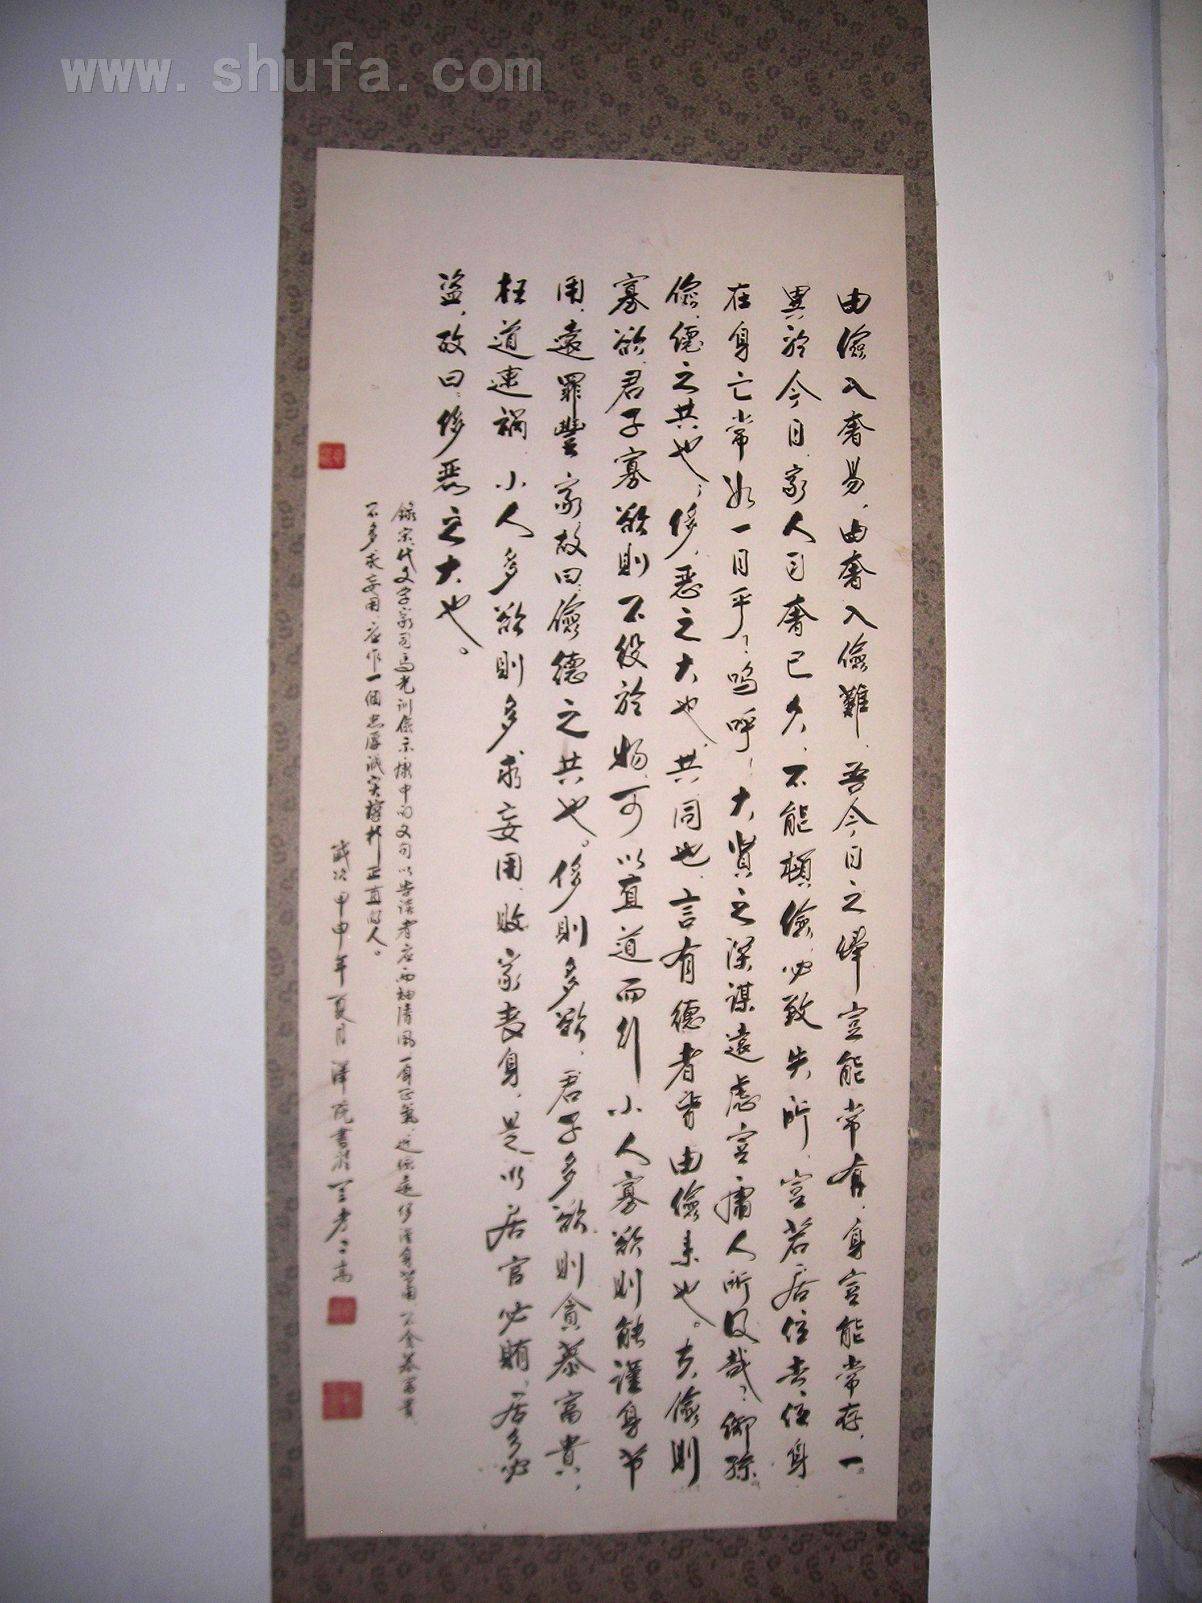 www.shufa.com
由儉入奢易，由奢入儉難。吾今日之俸豈能常有，身豈能常存，一
異於今日，家人習奢已久，不能頓儉，必致失所，豈若居位去位身
在身亡常如一日乎，嗚呼，大賢之深謀遠慮豈庸人所及哉，御孫
儉，德之共也，侈，惡之大也，共同也，言有德者皆由儉來也。夫儉則
寡欲，君子寡欲則不役於物，可以直道而行，小人寡欲則能謹身节
用，遠罪豐家，故曰，儉德之共也。侈則多欲，君子多欲則貪慕富貴，
枉道速禍，小人多欲則多求妄用，敗家喪身，是以居官必賄，居乡必
盜，故曰，侈惡之大也。
錄宋代文学家司馬光训儉示康中的文句以告读者应两袖清風一身正氣，近儉遠侈谨身節用不貪慕富貴
不多求妄用，应作一個忠厚诚实樸朴正直的人。
歲次甲申年夏月